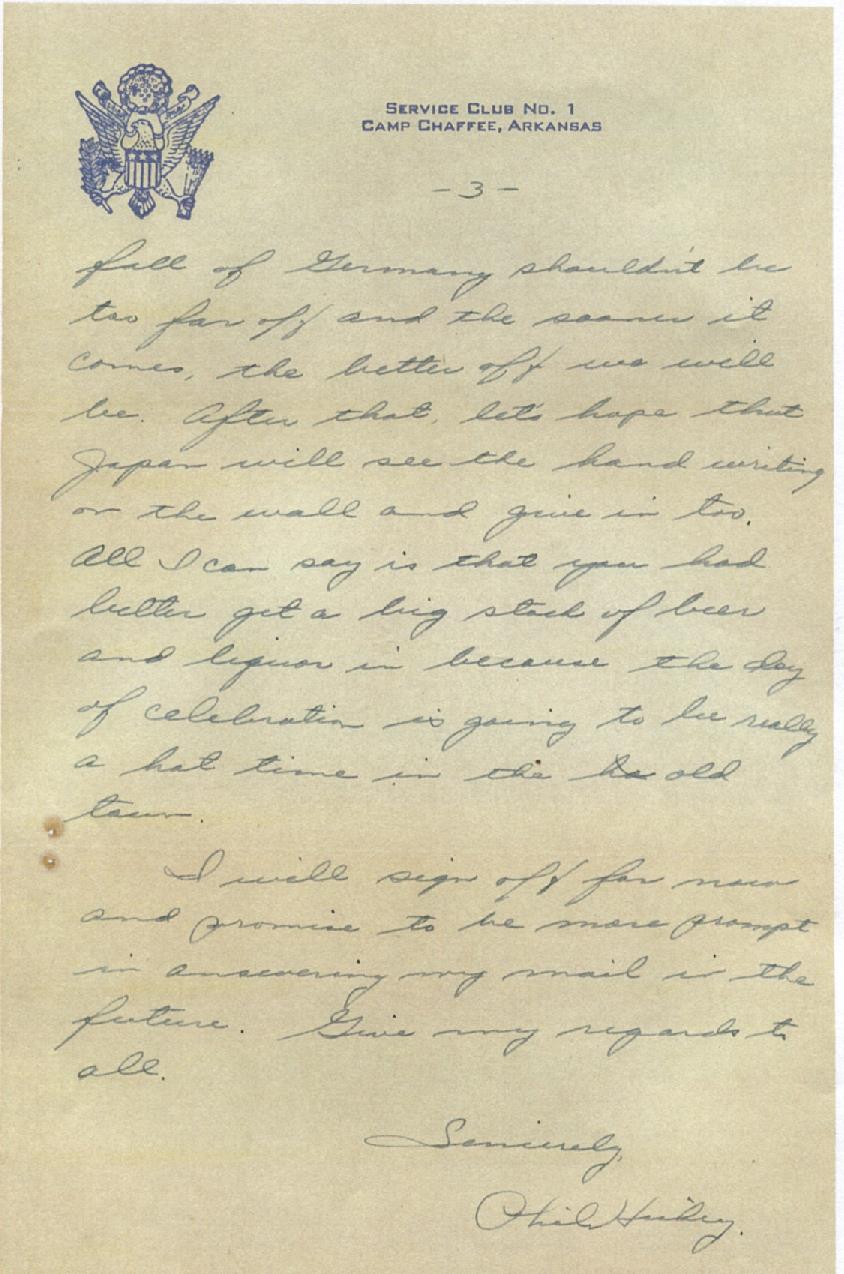 SERVICE CLUB NO. 1
CAMP CHAFFEE, ARKANSAS
- 3 -
fall of Germany shouldn't be
too far off and the sooner it
comes, the better off we will
be. After that, let's hope that
Japan will see the hand writing
on the wall and give in too.
All I can say is that you had
better get a big stock of beer
and liquor in because the day
of celebration is going to be really
a hot time in the old
town.
I will sign off for now
and promise to be more prompt
in answering my mail in the
future. Give my regards to
all.
Sincerely,
Phil